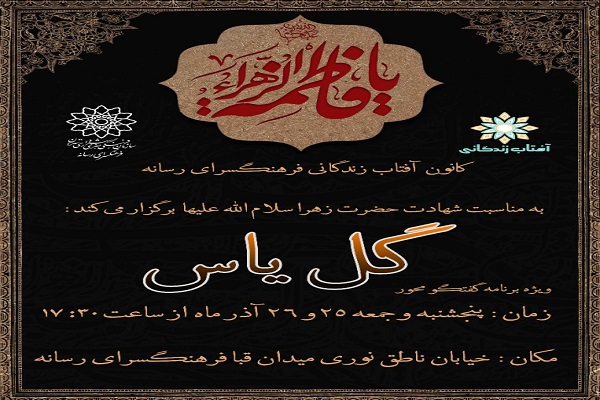 یا فاطمة الزهراء
آفتاب زندگانی
فرهنگسرای رسانه
کانون آفتاب زندگانی فرهنگسرای رسانه
به مناسبت شهادت حضرت زهرا سلام الله علیها برگزار می کند :
گل یاس
ویژه برنامه گفتگو محور
زمان : پنجشنبه و جمعه ۲۵ و ۲۶ آذر ماه از ساعت ۱۷:۳۰
مکان : خیابان ناطق نوری میدان قبا فرهنگسرای رسانه